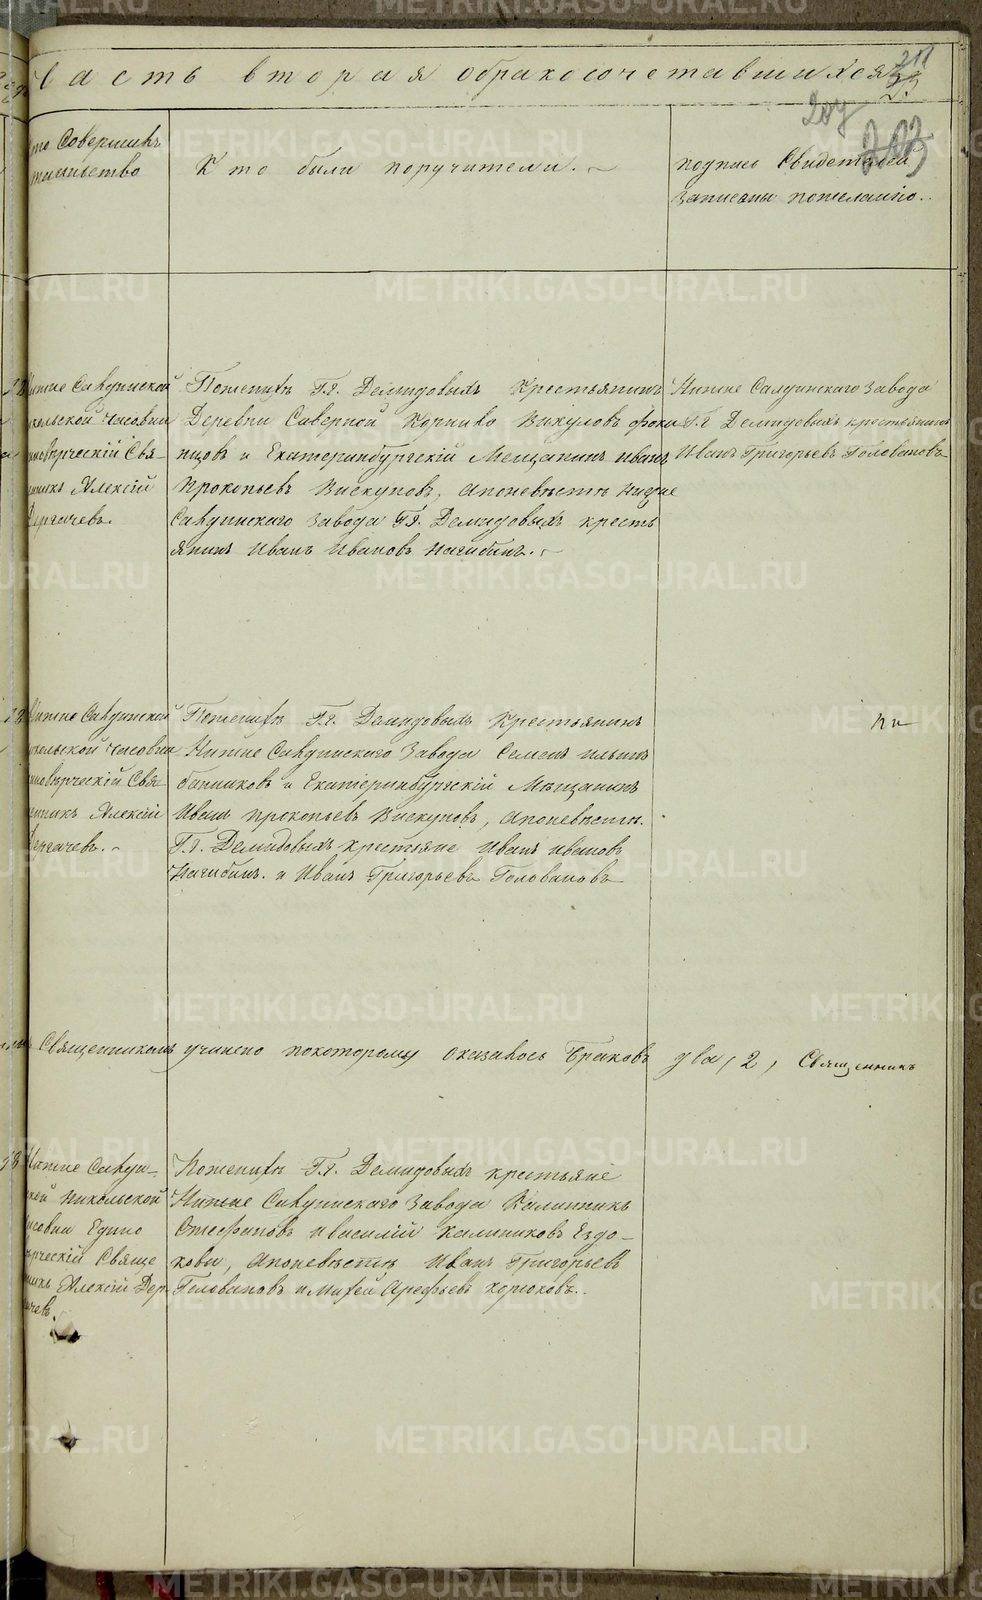 Часть вторая обракосочетавшихся
211
207
203
Кто Совершилъ
таинство
Кто были поручители.
подпись Свидетелей
записаны пожеланію.
Нижне Салдинской
Никольской часовни
Единоверческій Свя-
щенникъ Алексій
Дергачевъ.
По женихѣ Г.г. Демидовыхъ Крестьянинъ
Деревни Северной Корнило Викуловъ
и Екатеринбургскій Мещанинъ иванъ
Прокопьевъ Вискуновъ, апоневѣстѣ нижне
Салдинскаго завода Г.г. Демидовыхъ кресть
янинъ Иванъ Ивановъ Нагибинъ.
Нижне Салдинскаго Завода
Г.г Демидовыхъ крестьянинъ
Иванъ Григорьевъ Головановъ
Нижне Салдинской
Никольской часовни
Единоверческій Свя-
щенникъ Алексій
Дергачевъ.
Поженихѣ Г.г. Демидовыхъ Крестьянинъ
Нижне Салдинскаго Завода Семенъ ильинъ
банниковъ и Екатеринбургскій Мещанинъ
Иванъ прокопьевъ Вискуновъ, апоневѣстѣ.
Г.г. Демидовыхъ крестьяне Иванъ ивановъ
Нагибинъ. и Иванъ Григорьевъ Головановъ
Священникомъ учинено покоторому оказалось Браковъ два, 2, Священникъ
Нижне Салди-
нской Никольской
часовни Едино
верческій Свяще
нникъ Алексій Дер-
гачевъ.
Поженихѣ Г.г. Демидовыхъ крестьяне
Нижне Салдинскаго Завода Калинникъ
Стефановъ ивасилій калиниковъ Ездо-
ковы, Апоневѣстѣ Иванъ Григорьевъ
Головановъ имихей Арефьевъ хорюковъ.
METRIKI.GASO-URAL.RU